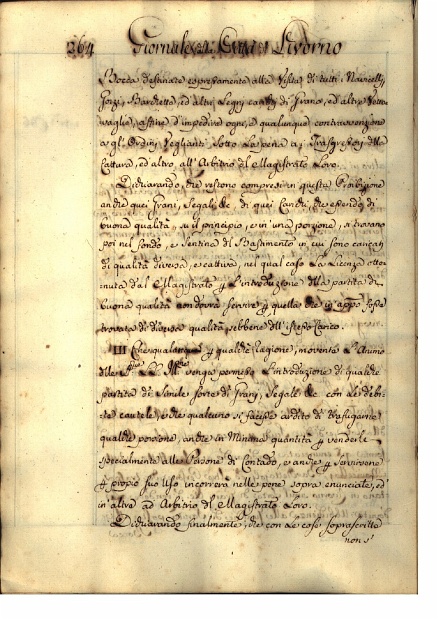 264 Giornale di Livorno
Bocca destinare espressamente alla Visita di tutti i Navicelli,
Gozzi, Barchette, ed altri Legni carichi di Grano, ed altre Vetto-
vaglie, affine d'impedire ogni, e qualunque contravvenzione
a gl'Ordini Veglianti sotto la pena a i Trasgressori della
Cattura, ed altro all'Arbitrio del Magistrato Loro.
Dichiarando, che restono compresi in questa Proibizione
anche quei Grani, Segali &c. di quei Carichi, che essendo di
buona qualità su il principio, e in una porzione, si trovano
poi nel fondo, e Sentina del Bastimento in cui sono caricati
di qualità diversa, e cattiva, nel qual caso La Licenza otte-
nuta dal Magistrato p l'introduzione della partita di
buona qualità non dovrà servire p quella che in appo fosse
trovata di diversa qualità sebbene dell'istesso Carico.
III Che qualunque p qualche Ragione, moventa L'Animo
delle LL. venga permessa L'introduzione di qualche
partita di simile sorte di Grani, Segali &c. con Le debi-
te cautele, e che qualcuno si facesse ardito di trafugarne
qualche porzione, anche in Minima quantità p venderli
specialmente alle Persone di Contado, e anche p servirsene
p propio suo Uso incorrerà nelle pene sopra enunciate, ed
in altre ad Arbitrio del Magistrato Loro.
Dichiarando finalmente, che con Le cose soprascritte
non s'